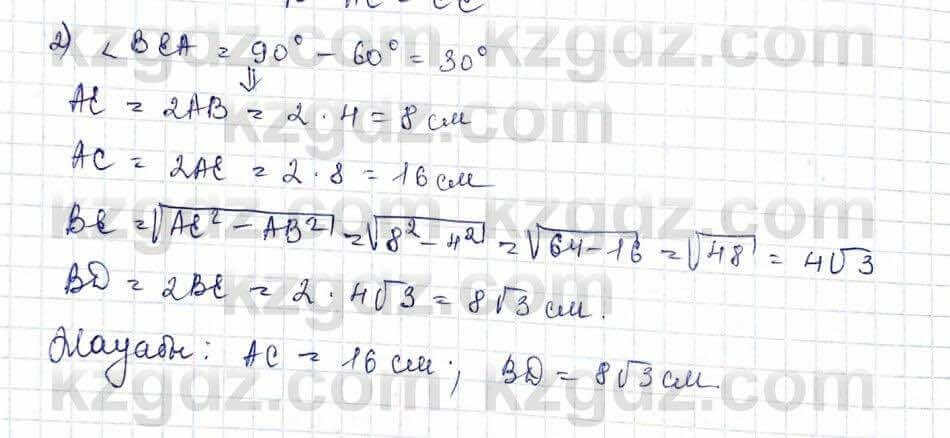 2) ∠BEA = 90° - 60° = 30°
⇓
AE = 2AB = 2 · 4 = 8 см
AC = 2AE = 2 · 8 = 16 см
BE = √AE² - AB² = √8² - 4² = √64 - 16 = √48 = 4√3
BD = 2BE = 2 · 4√3 = 8√3 см.
Жауабы: AC = 16 см; BD = 8√3 см.
kzgdz.com kzgdz.com
kzgdz.com
kzgdz.com kzgdz.com
kzgdz.com
kzgdz.com kzgdz.com